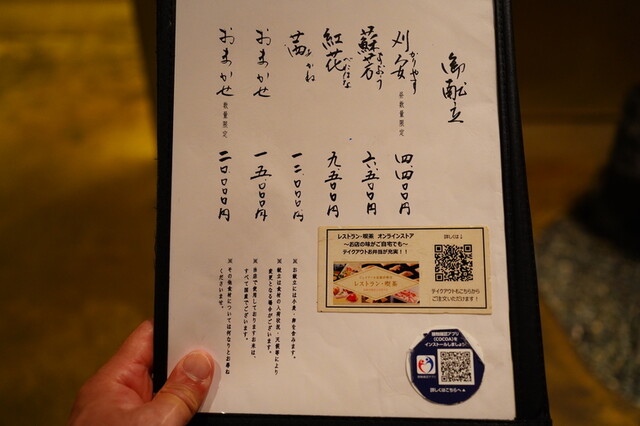 御献立
刈安 かりやす 昼数量限定 四、四〇〇円
蘇芳 すおう 六、五〇〇円
紅花 べにはな 九、五〇〇円
茜 あかね 一二、〇〇〇円
おまかせ 一五、〇〇〇円
おまかせ 数量限定 二〇、〇〇〇円
レストラン・喫茶 オンラインストア
~お店の味がご自宅でも~
テイクアウトお弁当が充実!!
レストラン・喫茶
詳しくは↓
テイクアウトもこちらから
ご注文いただけます!
接触確認アプリ
(COCOA)を
インストールしましょう!
詳しくはこちらへ▲
※お献立には小麦、卵を含みます。
※献立は食材の入荷状況・天候等により
変更となる場合がございます。
※当店で使用しておりますお米は、
すべて国産でございます。
※その他食材については何なりとお尋ね
くださいませ。